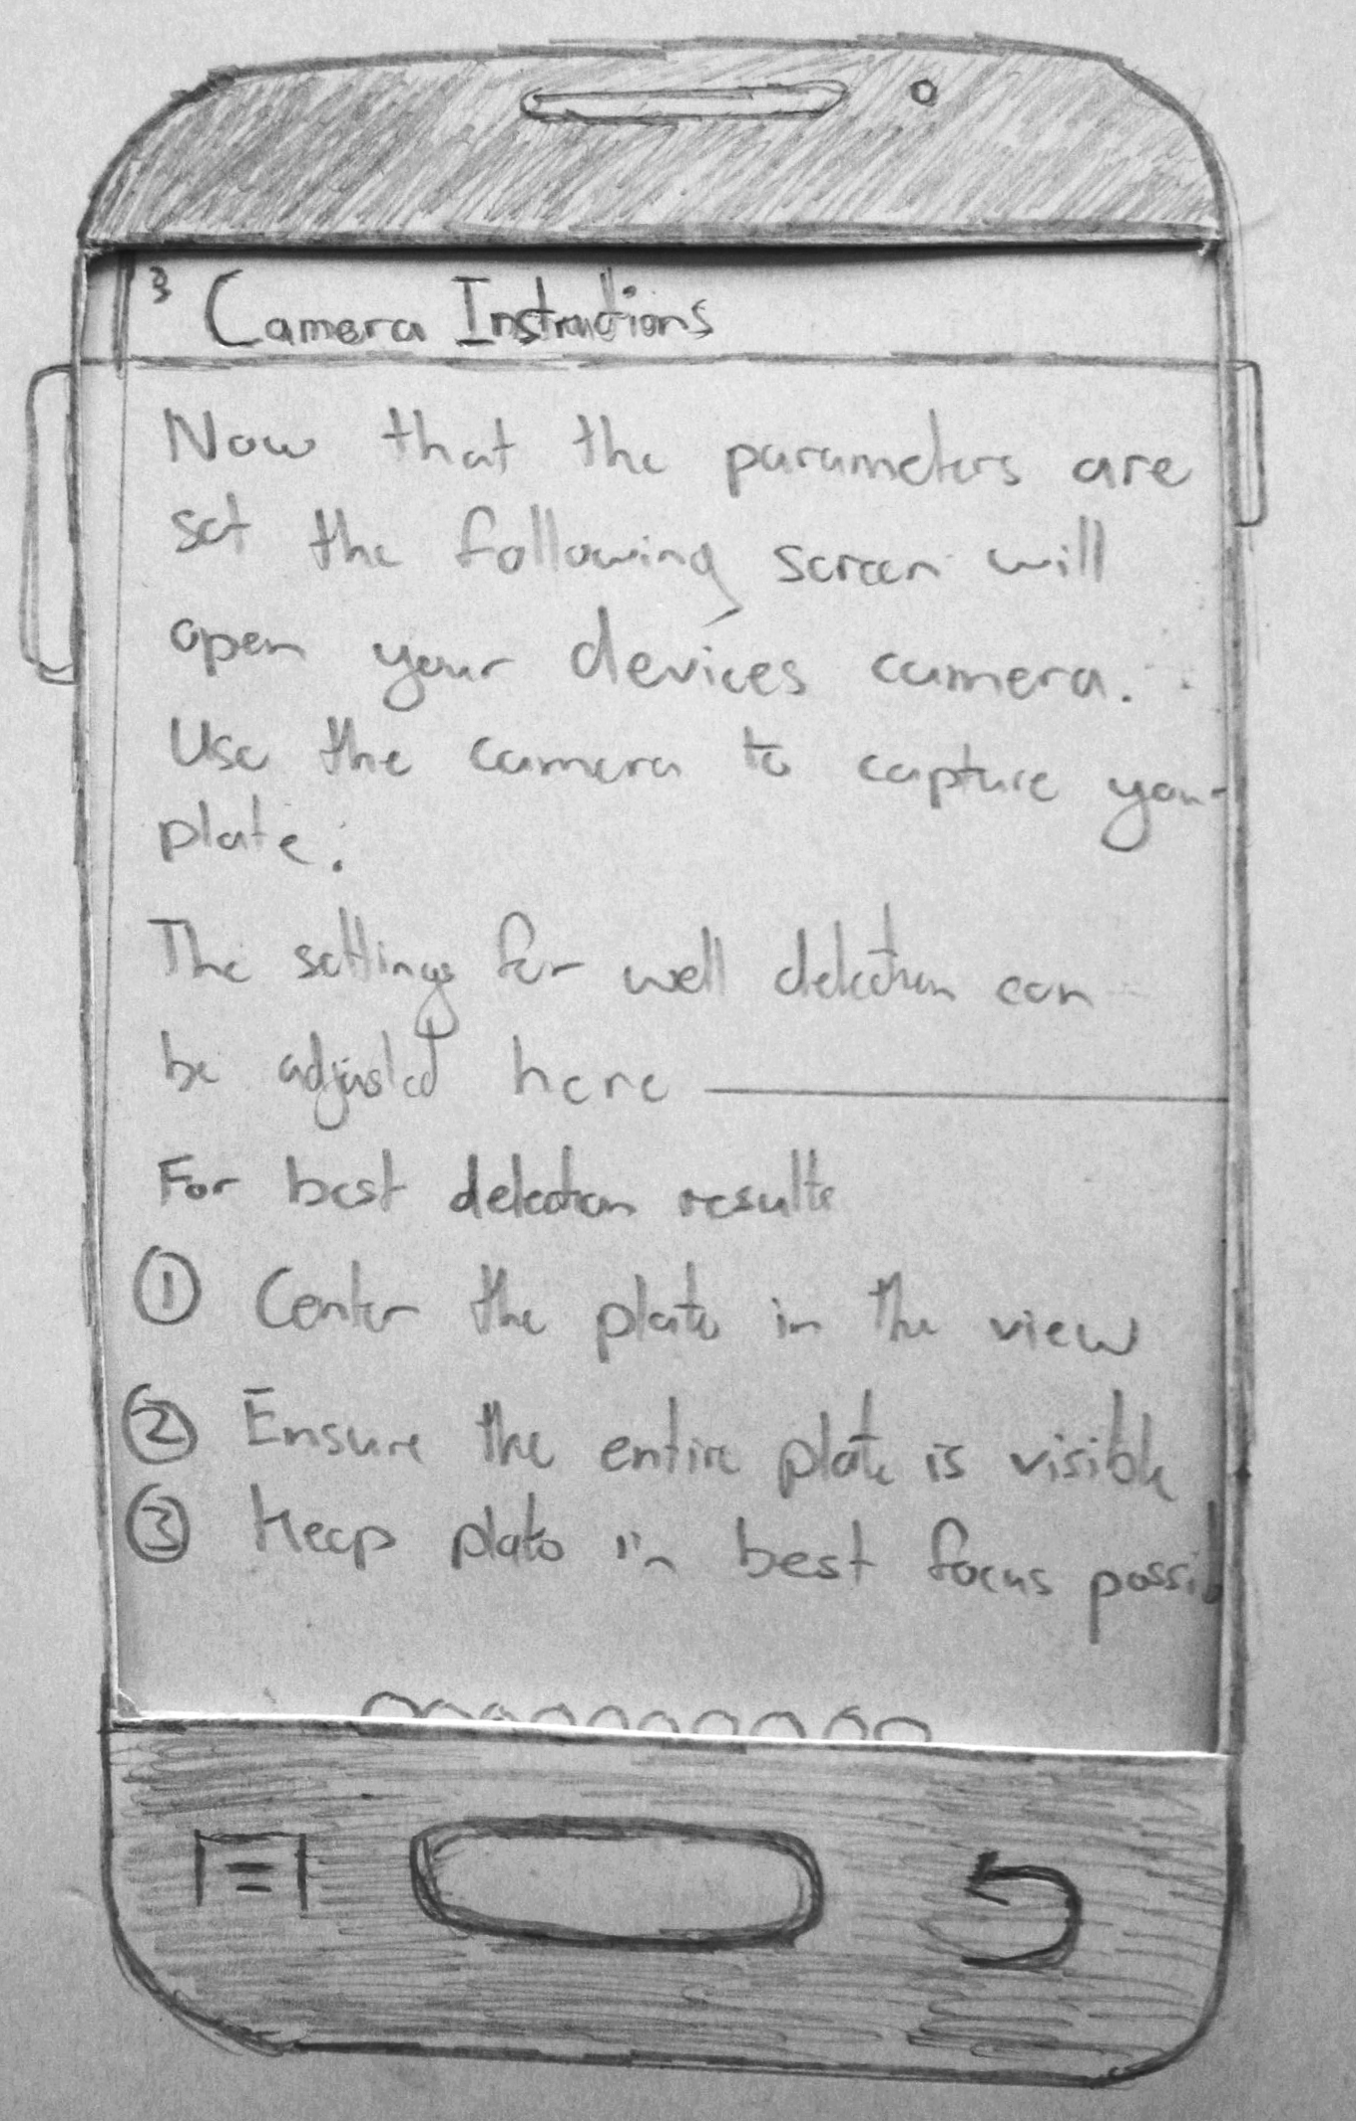 3 Camera Instructions
Now that the parameters are
set the following screen will
open your devices camera.
Use the camera to capture your
plate.
The settings for well detection can
be adjusted here
For best detection results
① Center the plate in the view
② Ensure the entire plate is visible
③ Keep plate in best focus possib